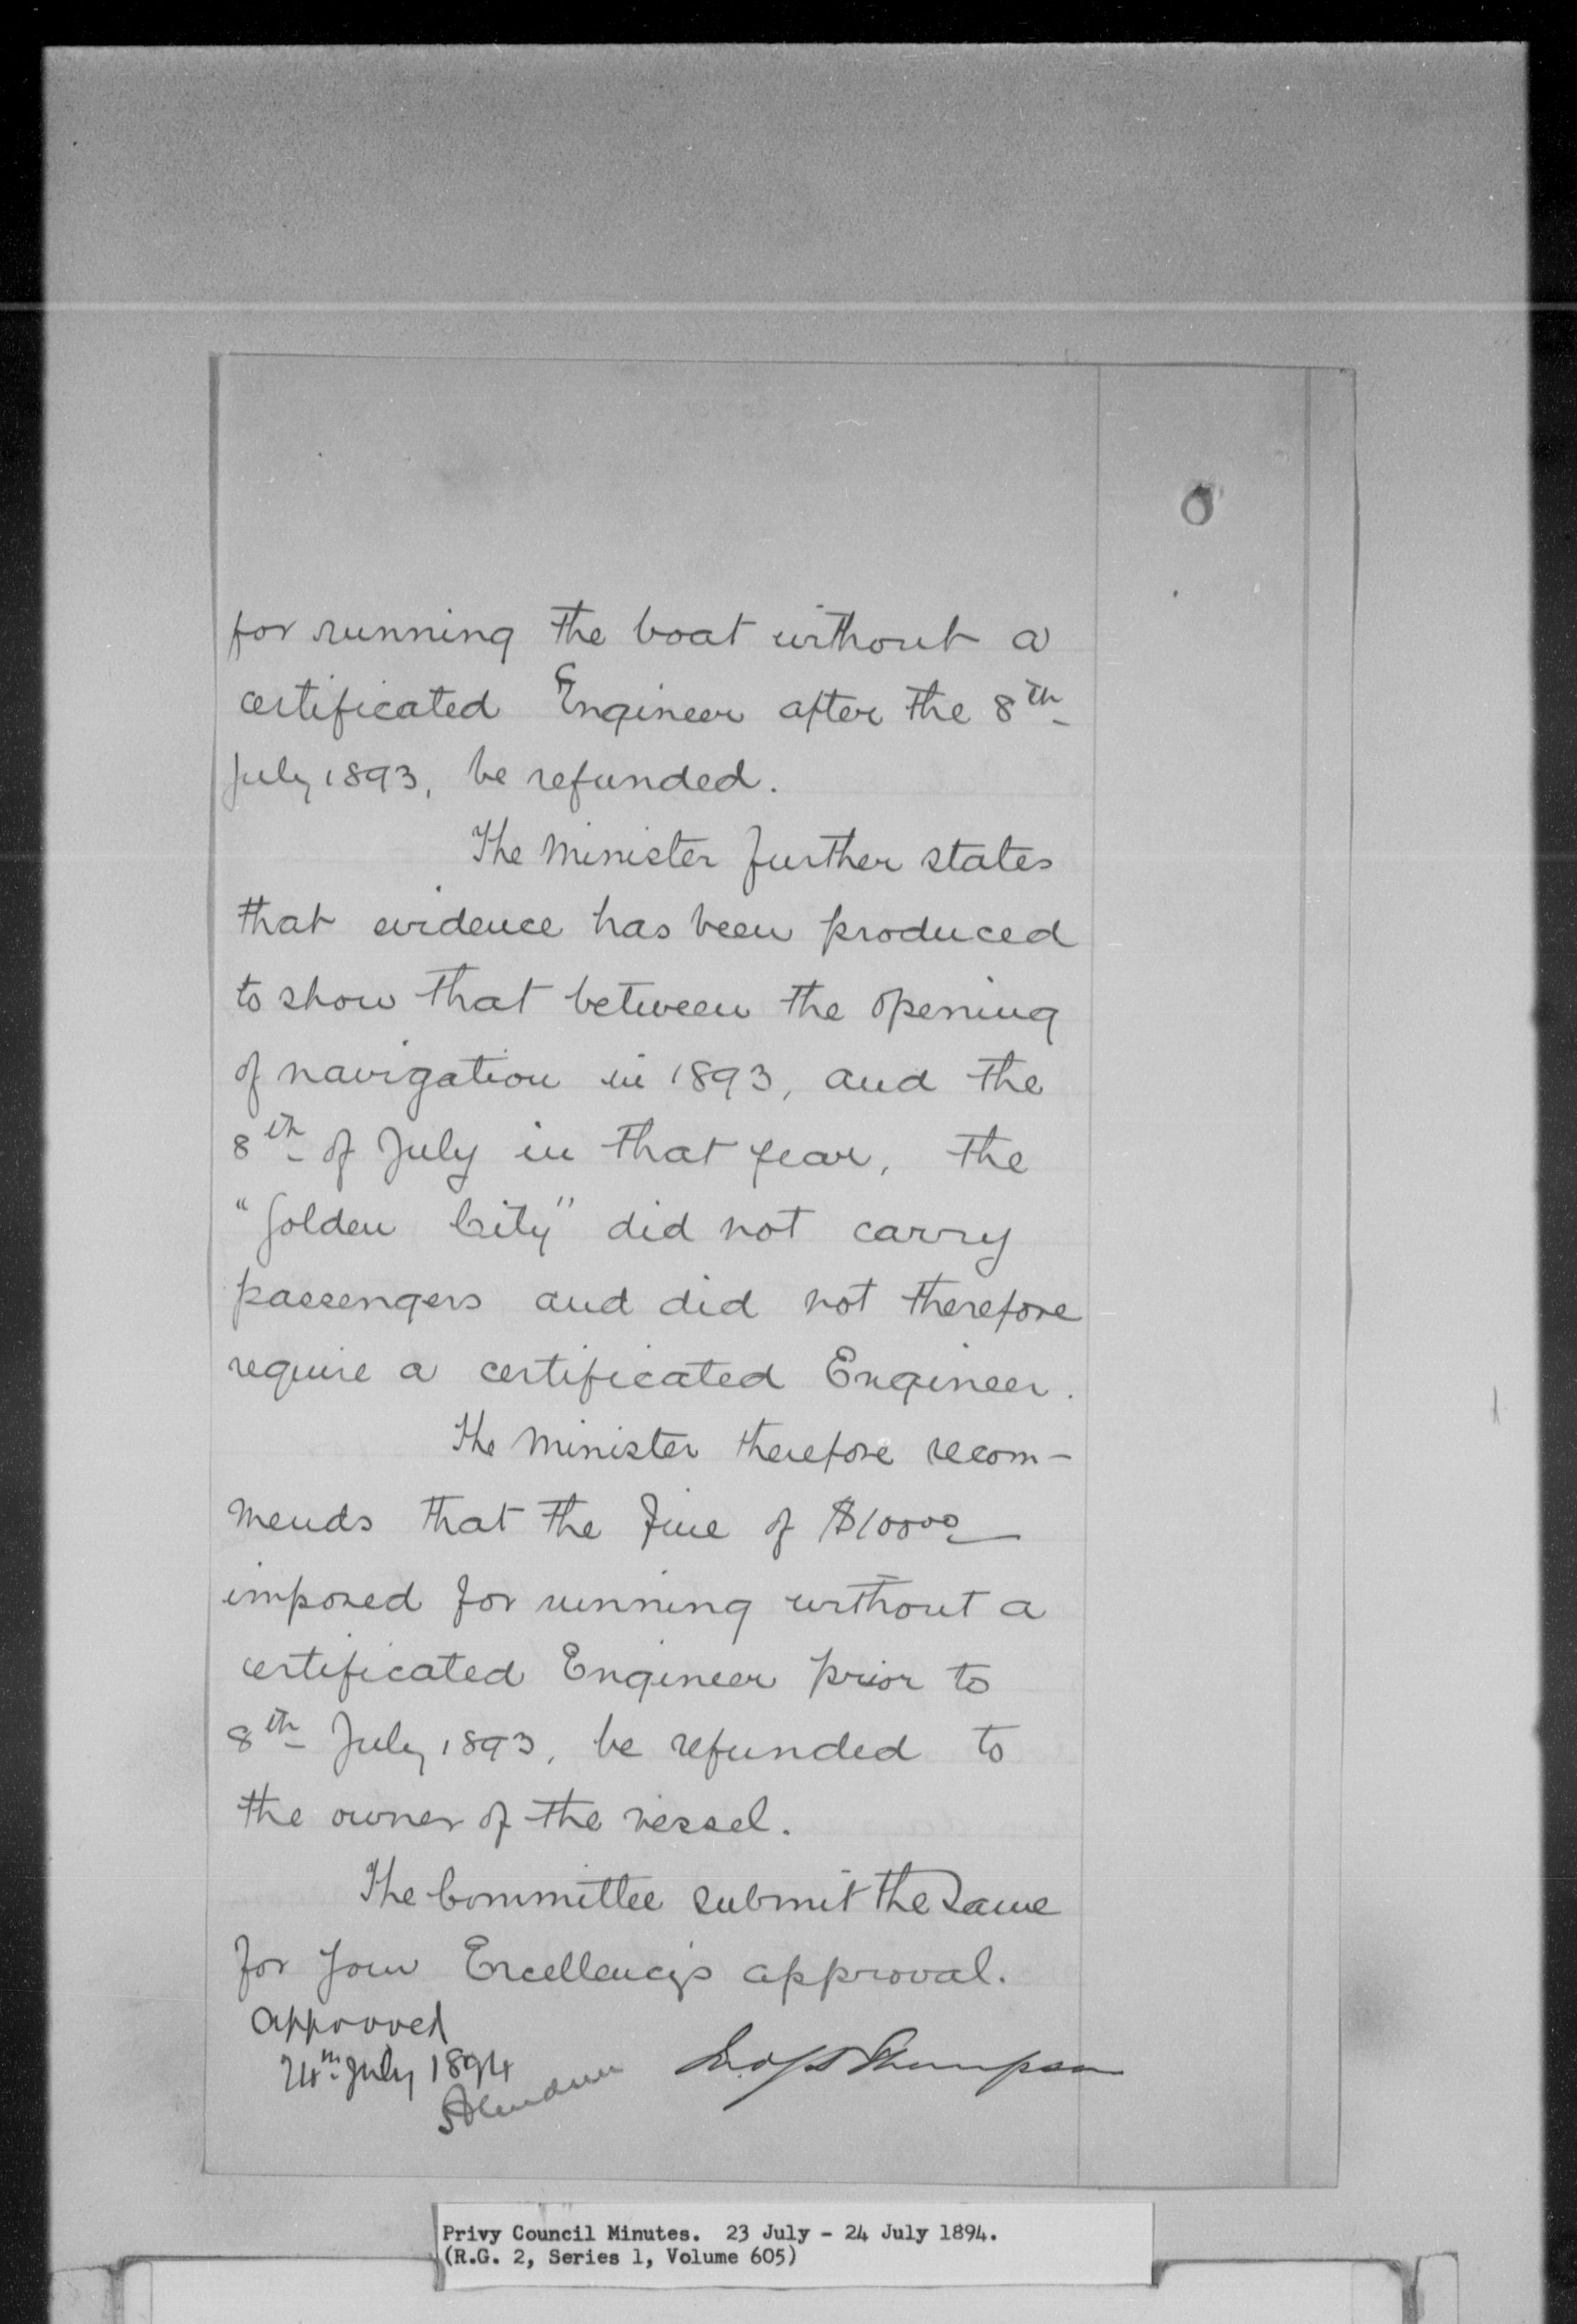 for running the boat without a
certificated Engineer after the 8th
July 1893, be refunded.
The Minister further states
that evidence has been produced
to show that between the opening
of navigation in 1893, and the
8th of July in that year, the
"Golden City" did not carry
passengers and did not therefore
require a certificated Engineer.
The Minister therefore recom-
mends that the fine of $100.00
imposed for running without a
certificated Engineer prior to
8th July 1893, be refunded to
the owner of the vessel.
The Committee submit the same
for Your Excellency's approval.
Approved
24th July 1894
Aberdeen
Jno S D Thompson
Privy Council Minutes. 23 July - 24 July 1894.
(R.G. 2, Series 1, Volume 605)